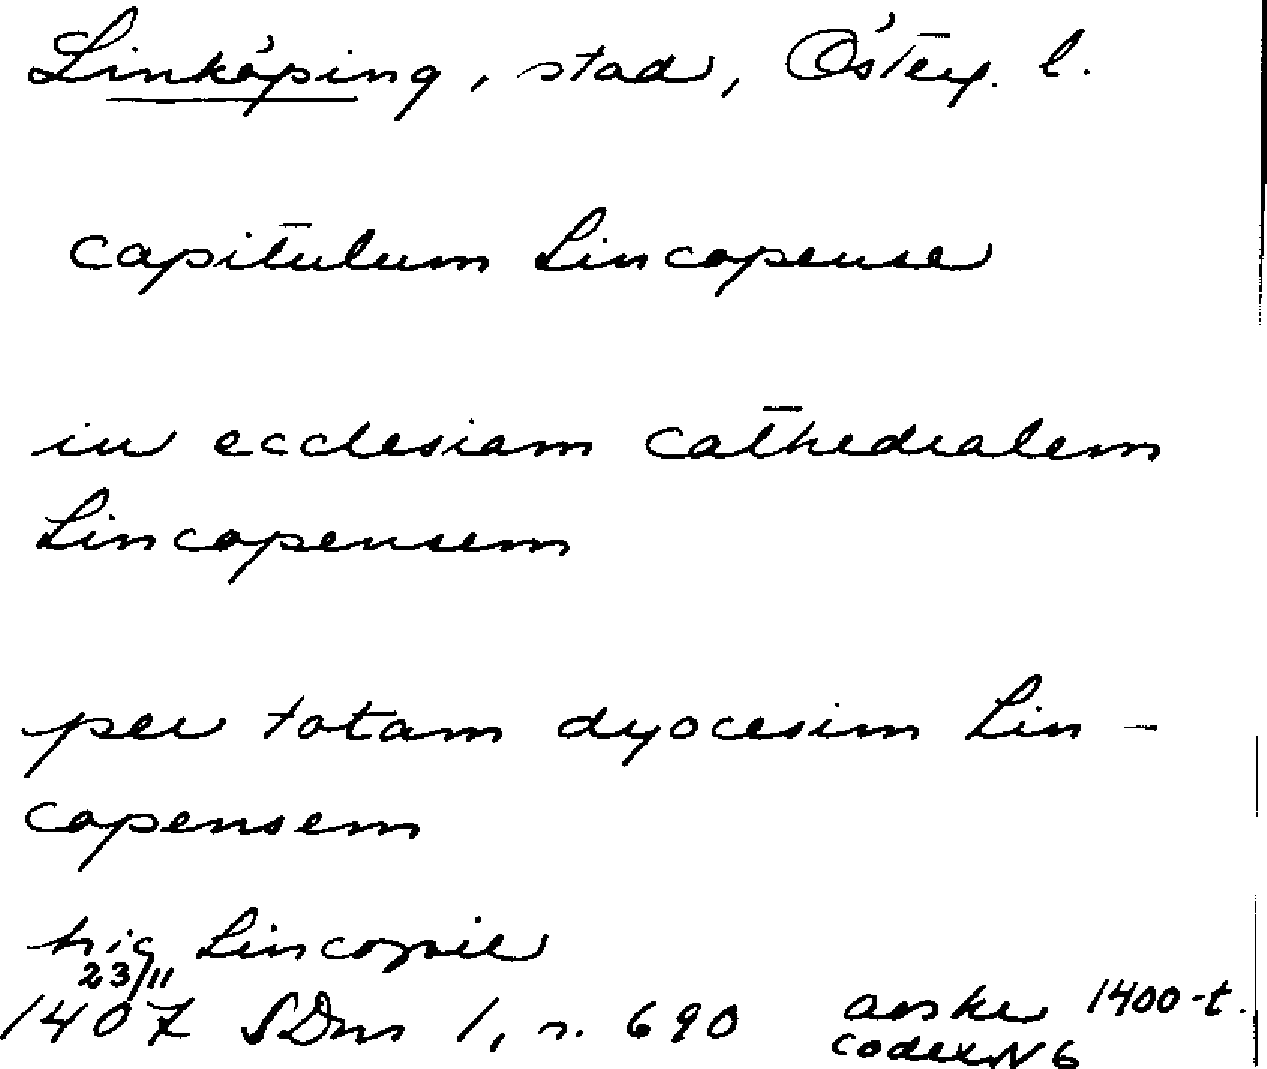 Linköping, stad, Österg. l.
capitulum Lincopense
in ecclesiam cathedralem
Lincopensem
per totam dyocesim Lin-
copensem
hic Lincopie
23/11
1407 SDns 1, n. 690 avskr 1400-t.
codex N 6